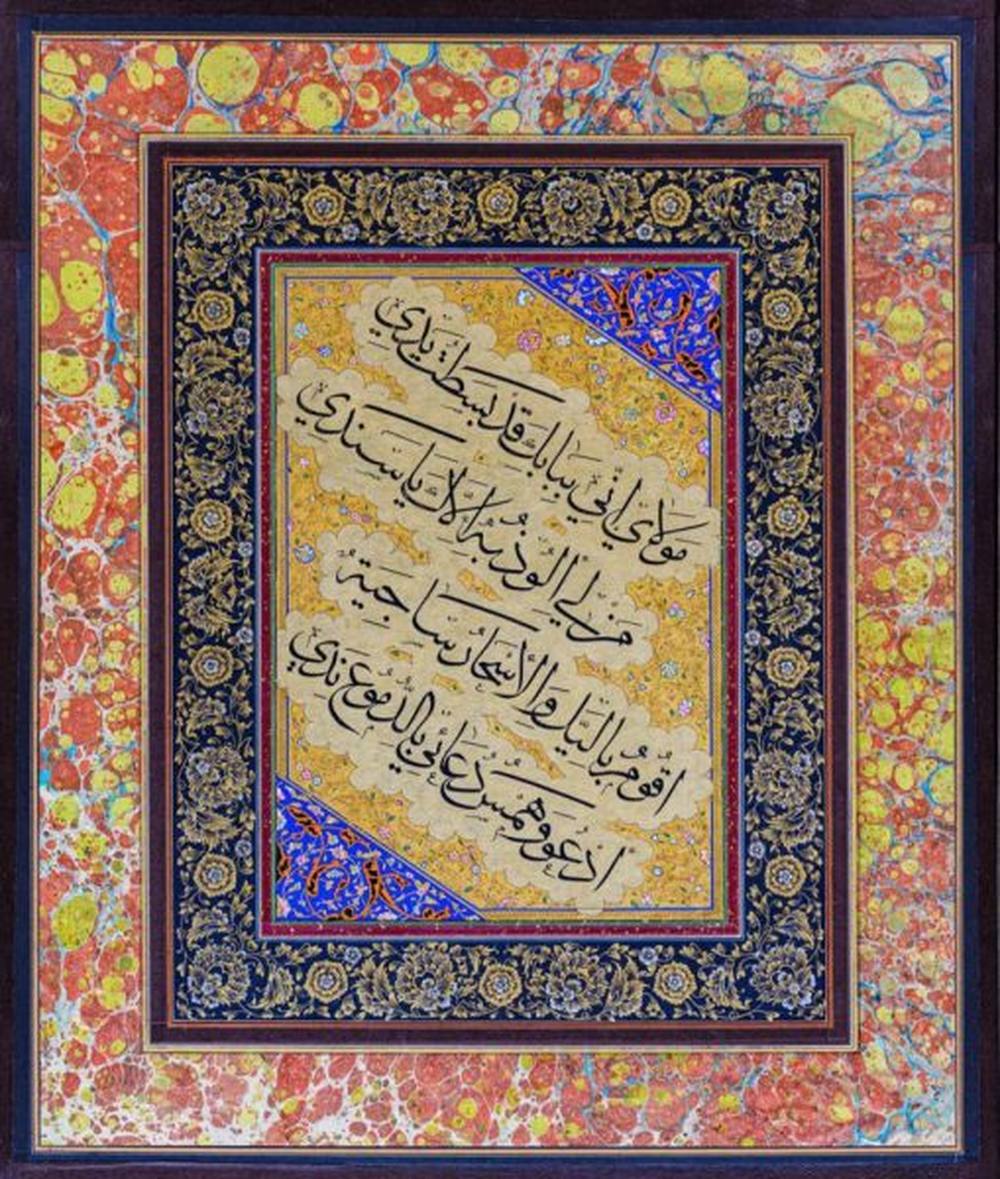 مولاي إنّي ببابك قد بسطت يدي
من لي ألوذ به إلاك يا سندي
اقوم بالليل والأسحار ساجية
ادعو وهمس دعائي بالدموع ندي